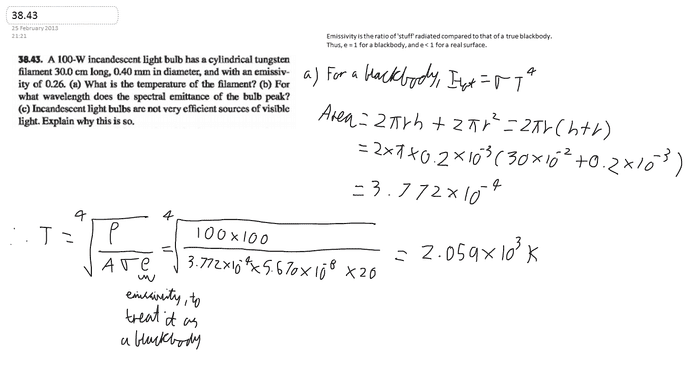 38.43
25 February 2013
21:21
Emissivity is the ratio of 'stuff' radiated compared to that of a true blackbody.
Thus, e = 1 for a blackbody, and e < 1 for a real surface.
38.43. A 100-W incandescent light bulb has a cylindrical tungsten
filament 30.0 cm long, 0.40 mm in diameter, and with an emissiv-
ity of 0.26. (a) What is the temperature of the filament? (b) For
what wavelength does the spectral emittance of the bulb peak?
(c) Incandescent light bulbs are not very efficient sources of visible
light. Explain why this is so.
a) For a blackbody, I_tot = σT⁴
Area = 2πrh + 2πr² = 2πr(h+r)
= 2×π×0.2×10⁻³(30×10⁻² + 0.2×10⁻³)
= 3.772×10⁻⁴
∴ T = ⁴√(P / Aσe) = ⁴√(100×100 / 3.772×10⁻⁴×5.670×10⁻⁸×26) = 2.059×10³ K
emissivity, to
treat it as
a blackbody